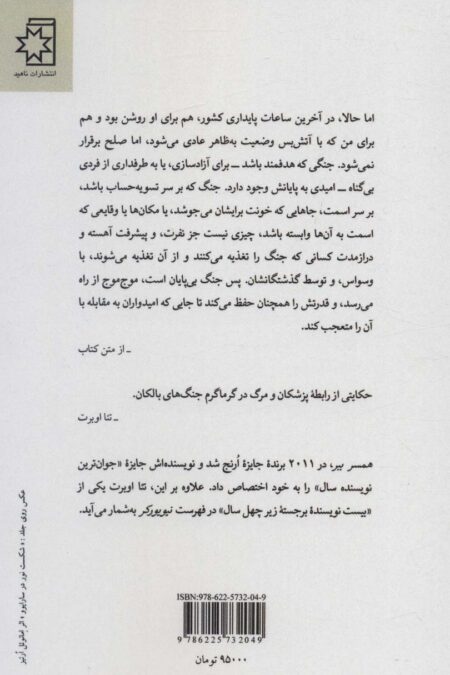 انتشارات ناهید
اما حالا، در آخرین ساعات پایداری کشور، هم برای او روشن بود و هم
برای من که با آتش‌بس وضعیت به‌ظاهر عادی می‌شود، اما صلح برقرار
نمی‌شود. جنگی که هدفمند باشد ــ برای آزادسازی، یا به طرفداری از فردی
بی‌گناه ــ امیدی به پایانش وجود دارد. جنگ که بر سر تسویه‌حساب باشد،
بر سر اسمت، جاهایی که خونت برایشان می‌جوشد، یا مکان‌ها یا وقایعی که
اسمت به آن‌ها وابسته باشد، چیزی نیست جز نفرت، و پیشرفت آهسته و
درازمدت کسانی که جنگ را تغذیه می‌کنند و از آن تغذیه می‌شوند، با
وسواس، و توسط گذشتگانشان. پس جنگ بی‌پایان است، موج‌موج از راه
می‌رسد، و قدرتش را همچنان حفظ می‌کند تا جایی که امیدواران به مقابله با
آن را متعجب کند.
ــ از متن کتاب
حکایتی از رابطهٔ پزشکان و مرگ در گرماگرم جنگ‌های بالکان.
ــ تئا اوبرت
همسر ببر، در ۲۰۱۱ برندهٔ جایزهٔ اُرنج شد و نویسنده‌اش جایزهٔ «جوان‌ترین
نویسنده سال» را به خود اختصاص داد. علاوه بر این، تئا اوبرت یکی از
«بیست نویسندهٔ برجستهٔ زیر چهل سال» در فهرست نیویورکر به‌شمار می‌آید.
عکس روی جلد: «شکست نور در سارایوو» اثر
ISBN:978-622-5732-04-9
9 786225 732049
۹۵۰۰۰ تومان